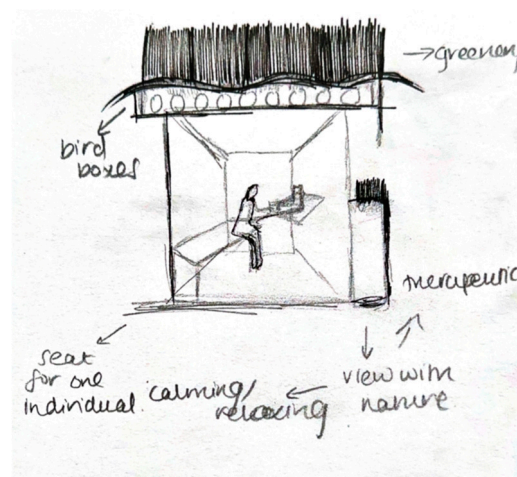 greenery
bird
boxes
therapeutic
seat
for one
individual.
calming/
relaxing
view with
nature